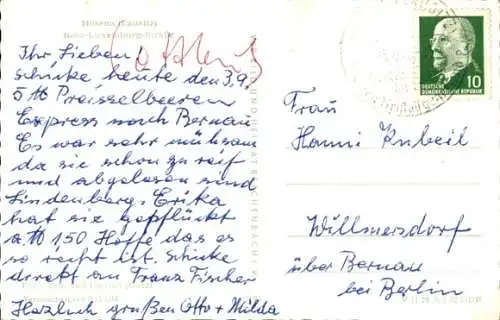 Hosena (Lausitz)
Rosa-Luxemburg-Straße
Ihr Lieben!
schicke heute den 3.9.
5 ℔ Preisselbeeren
Express nach Bernau
Es war sehr mühsam
da sie schon zu reif
und abgelesen sind
Lindenberg, Erika
hat sie gepflückt
a ℔ 1,50 Hoffe das es
so recht ist. schicke
direkt an Franz Fischer
Herzlich grüßen Otto + Milda
10
DEUTSCHE
DEMOKRATISCHE REPUBLIK
Frau
Hanni Kubeil
Willmersdorf
über Bernau
bei Berlin